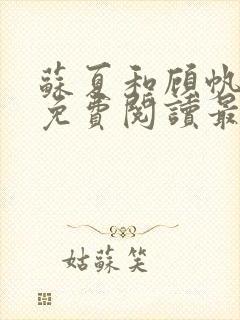 蘇夏和顧帆
免費閱讀最
姑蘇笑